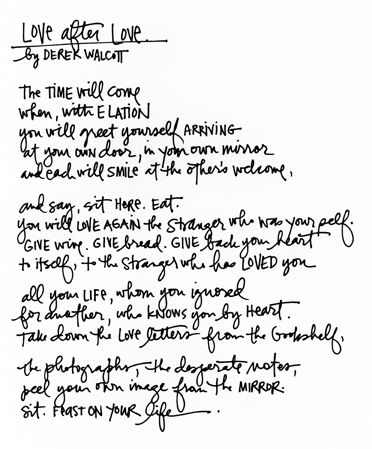 Love after Love.
by DEREK WALCOTT
The TIME will come
when, with ELATION
you will greet yourself ARRIVING
at your own door, in your own mirror
and each will SMILE at the other's welcome,
and say, sit HERE. Eat.
You will LOVE AGAIN the stranger who was your self.
GIVE wine. GIVE bread. GIVE back your heart
to itself, to the stranger who has LOVED you
all your LIFE, whom you ignored
for another, who KNOWS you by HEART.
Take down the LOVE letters from the bookshelf,
the photographs, the desperate notes,
peel your own image from the MIRROR.
Sit. FEAST ON YOUR life.